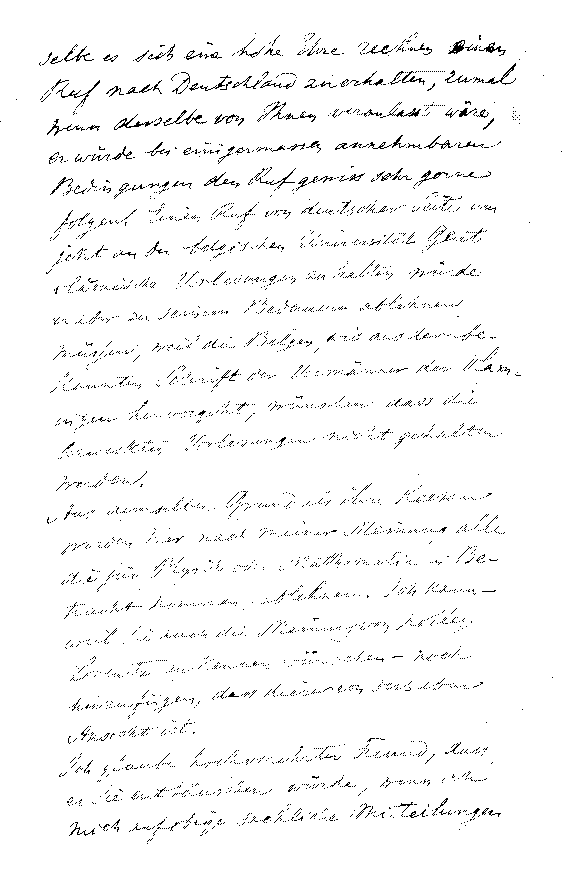 selbe es sich eine hohe Ehre rechnen einen
Ruf nach Deutschland zu erhalten, zumal
wenn derselbe von Ihnen veranlasst wäre,
er würde bei einigermassen annehmbaren
Bedingungen den Ruf gewiss sehr gerne
folgen. Einen Ruf von deutscher Seite um
jetzt an der belgischen Universität Gent
Vorlesungen zu halten würde
er aber zu seinem Bedauern ablehnen
müssen, weil die Belgen, wie aus der be-
kannten Schrift der
hervorgeht, wünschen dass die
Vorlesungen nicht gehalten
werden.
Aus demselben Grund als Herr
würden hier nach meiner Meinung alle
die für Physik oder Mathematik in Be-
tracht kommen ablehnen. Ich kann -
weil Sie auch die Meinung von
Lorentz zu kennen wünschen - noch
hinzufügen, dass dieser von derselben
Ansicht ist.
Ich glaube hochverehrter Freund, dass
es Sie enttäuschen würde, wenn ich
mich auf obige sachliche Mitteilungen